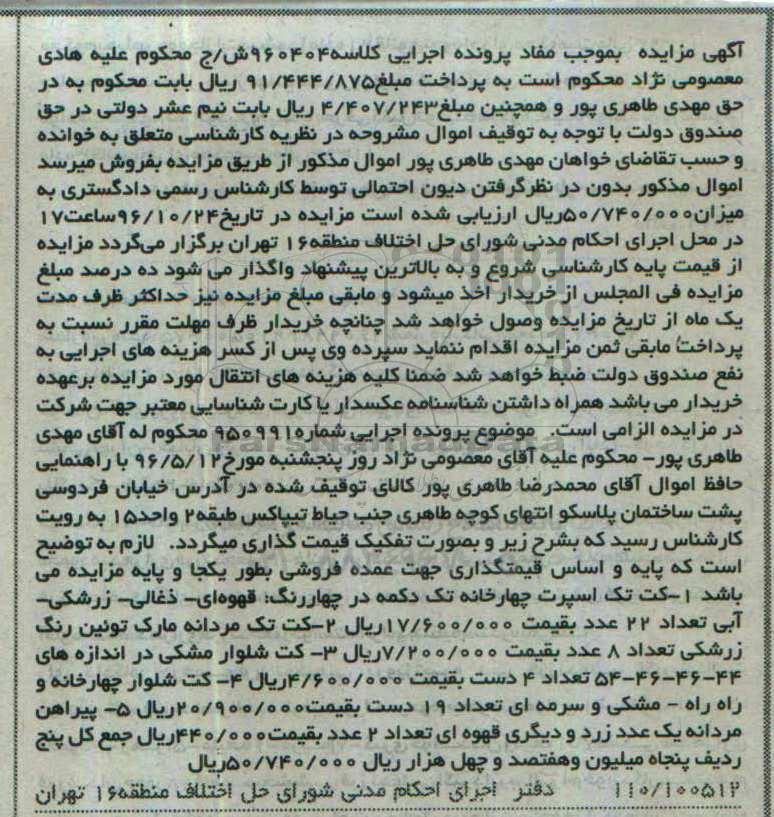 آگهی مزایده بموجب مفاد پرونده اجرایی کلاسه۹۶۰۴۰۴ش/ج محکوم علیه هادی
معصومی نژاد محکوم است به پرداخت مبلغ۹۱/۴۴۴/۸۷۵ ریال بابت محکوم به در
حق مهدی طاهری پور و همچنین مبلغ۴/۴۰۷/۲۴۳ ریال بابت نیم عشر دولتی در حق
صندوق دولت با توجه به توقیف اموال مشروحه در نظریه کارشناسی متعلق به خوانده
و حسب تقاضای خواهان مهدی طاهری پور اموال مذکور از طریق مزایده بفروش میرسد
اموال مذکور بدون در نظرگرفتن دیون احتمالی توسط کارشناس رسمی دادگستری به
میزان۵۰/۷۴۰/۰۰۰ریال ارزیابی شده است مزایده در تاریخ۹۶/۱۰/۲۴ساعت۱۷
در محل اجرای احکام مدنی شورای حل اختلاف منطقه۱۶ تهران برگزار می‌گردد مزایده
از قیمت پایه کارشناسی شروع و به بالاترین پیشنهاد واگذار می شود ده درصد مبلغ
مزایده فی المجلس از خریدار اخذ میشود و مابقی مبلغ مزایده نیز حداکثر ظرف مدت
یک ماه از تاریخ مزایده وصول خواهد شد چنانچه خریدار ظرف مهلت مقرر نسبت به
پرداخت مابقی ثمن مزایده اقدام ننماید سپرده وی پس از کسر هزینه های اجرایی به
نفع صندوق دولت ضبط خواهد شد ضمنا کلیه هزینه های انتقال مورد مزایده برعهده
خریدار می باشد همراه داشتن شناسنامه عکسدار یا کارت شناسایی معتبر جهت شرکت
در مزایده الزامی است. موضوع پرونده اجرایی شماره۹۵۰۹۹۱ محکوم له آقای مهدی
طاهری پور- محکوم علیه آقای معصومی نژاد روز پنجشنبه مورخ۹۶/۵/۱۲ با راهنمایی
حافظ اموال آقای محمدرضا طاهری پور کالای توقیف شده در آدرس خیابان فردوسی
پشت ساختمان پلاسکو انتهای کوچه طاهری جنب حیاط تیپاکس طبقه۲ واحد۱۵ به رویت
کارشناس رسید که بشرح زیر و بصورت تفکیک قیمت گذاری میگردد. لازم به توضیح
است که پایه و اساس قیمتگذاری جهت عمده فروشی بطور یکجا و پایه مزایده می
باشد ۱-کت تک اسپرت چهارخانه تک دکمه در چهاررنگ: قهوه‌ای- ذغالی- زرشکی-
آبی تعداد ۲۲ عدد بقیمت ۱۷/۶۰۰/۰۰۰ریال ۲-کت تک مردانه مارک تونین رنگ
زرشکی تعداد ۸ عدد بقیمت ۷/۲۰۰/۰۰۰ریال ۳- کت شلوار مشکی در اندازه های
۵۴-۴۶-۴۶-۴۴ تعداد ۴ دست بقیمت ۴/۶۰۰/۰۰۰ریال ۴- کت شلوار چهارخانه و
راه راه - مشکی و سرمه ای تعداد ۱۹ دست بقیمت۲۰/۹۰۰/۰۰۰ریال ۵- پیراهن
مردانه یک عدد زرد و دیگری قهوه ای تعداد ۲ عدد بقیمت۴۴۰/۰۰۰ریال جمع کل پنج
ردیف پنجاه میلیون وهفتصد و چهل هزار ریال ۵۰/۷۴۰/۰۰۰ریال
۱۱۰/۱۰۰۵۱۲ دفتر اجرای احکام مدنی شورای حل اختلاف منطقه۱۶ تهران